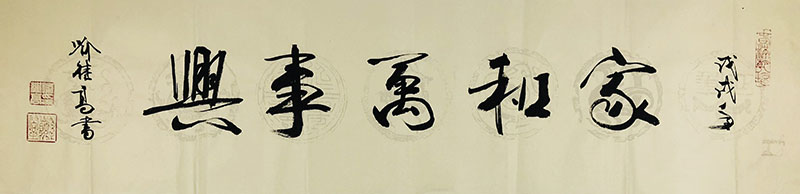 戊戌年
家和萬事興
喻继高書